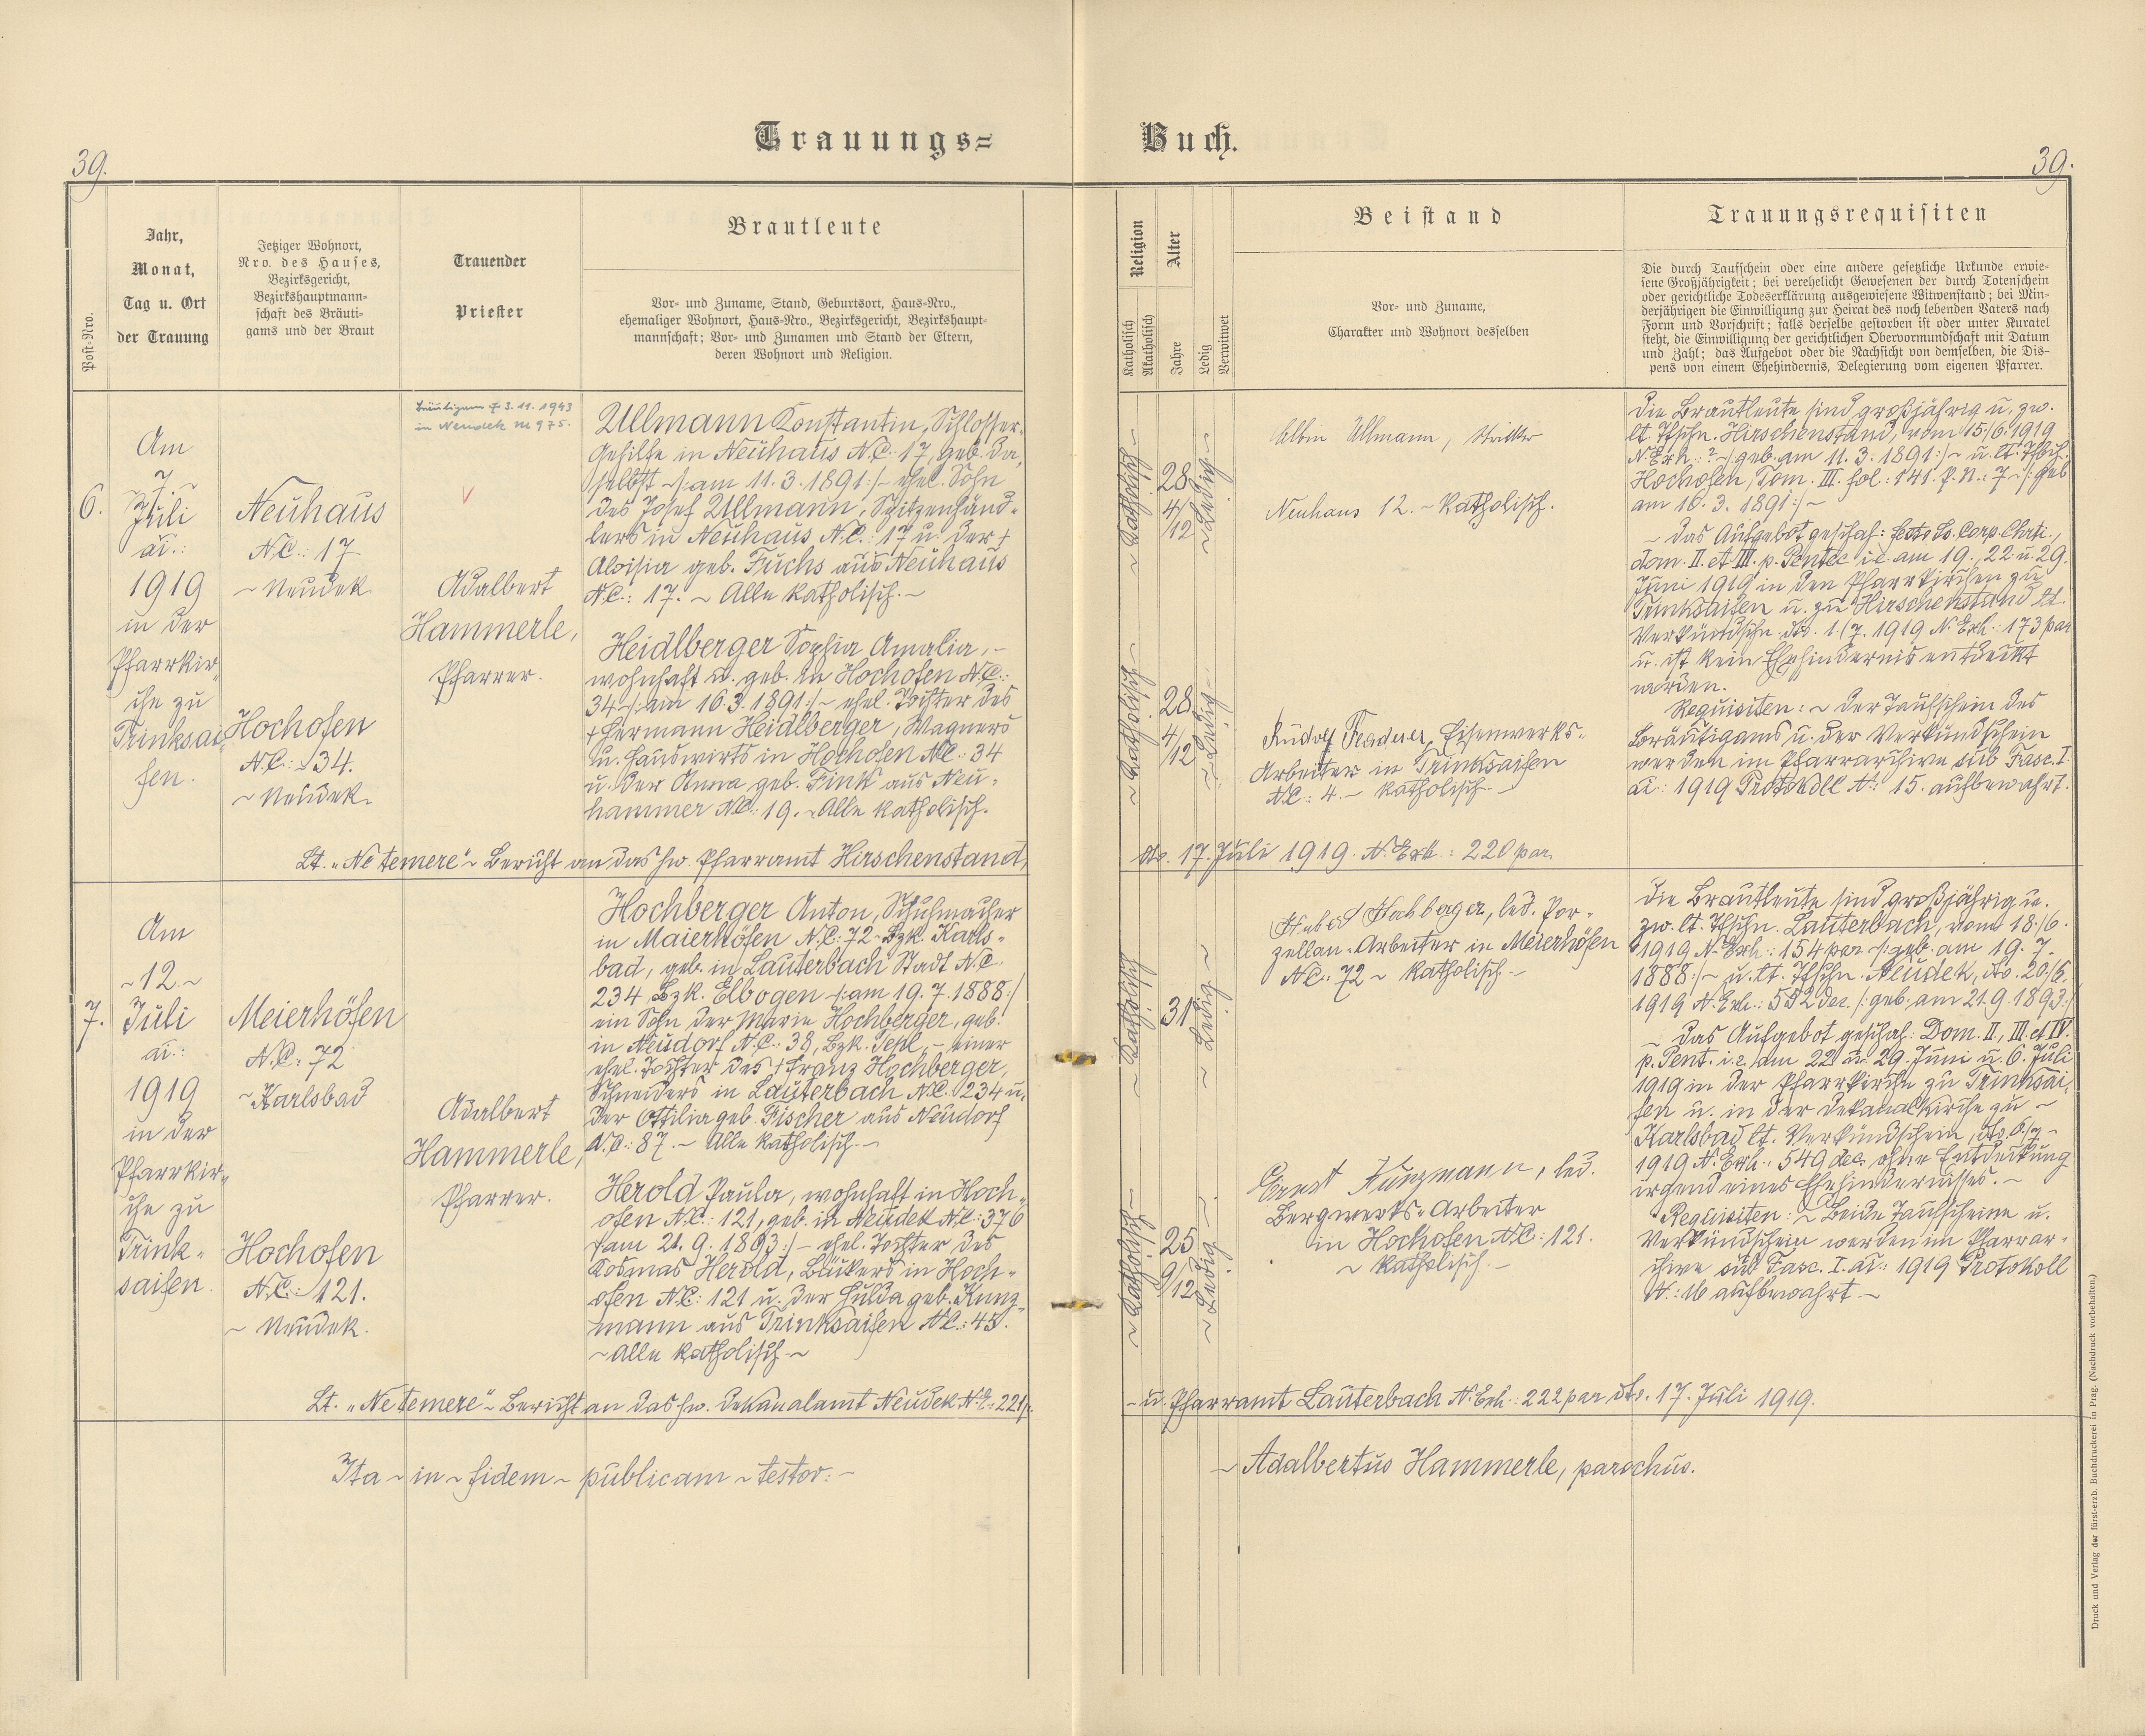 Trauungs=
Buch.
39.
39.
Post-Nro.
Jahr,
Monat,
Tag u. Ort
der Trauung
Jetziger Wohnort,
Nro. des Hauses,
Bezirksgericht,
Bezirkshauptmann-
schaft des Bräuti-
gams und der Braut
Trauender
Priester
Brautleute
Vor- und Zuname, Stand, Geburtsort, Haus-Nro.,
ehemaliger Wohnort, Haus-Nro., Bezirksgericht, Bezirkshaupt-
mannschaft; Vor- und Zunamen und Stand der Eltern,
deren Wohnort und Religion.
Religion
Katholisch
Akatholisch
Alter
Jahre
Ledig
Verwitwet
Beistand
Vor- und Zuname,
Charakter und Wohnort desselben
Trauungsrequisiten
Die durch Taufschein oder eine andere gesetzliche Urkunde erwie-
sene Großjährigkeit; bei verehelicht Gewesenen der durch Totenschein
oder gerichtliche Todeserklärung ausgewiesene Witwenstand; bei Min-
derjährigen die Einwilligung zur Heirat des noch lebenden Vaters nach
Form und Vorschrift; falls derselbe gestorben ist oder unter Kuratel
steht, die Einwilligung der gerichtlichen Obervormundschaft mit Datum
und Zahl; das Aufgebot oder die Nachsicht von demselben, die Dis-
pens von einem Ehehindernis, Delegierung vom eigenen Pfarrer.
6.
Am
Juli
ai.:
1919
in der
Pfarrkir-
che zu
Trinksai-
fen.
Neuhaus
N.C.: 17
~ Neudek
Hochofen
N.C.: 34.
~ Neudek.
Bräutigam † 3. 11. 1943
in Neudek Nr 975.
Adalbert
Hammerle,
Pfarrer.
Ullmann Konstantin, Schlosser-
gehilfe in Neuhaus N.C. 17, geb. da-
selbst ~/: am 11. 3. 1891 :/~ ehel. Sohn
des Josef Ullmann, Spitzenhänd-
lers in Neuhaus N.C.: 17 u. der †
Aloisia geb. Fuchs aus Neuhaus
N.C.: 17. ~ Alle katholisch. ~
Heidlberger Sophia Amalia, -
wohnhaft u. geb. in Hochofen N.C.:
34 ~/: am 16. 3. 1891 :/~ ehel. Tochter des
† Hermann Heidlberger, Wagners
u. Hauswirts in Hochofen N.C. 34
u. der Anna geb. Fink aus Neu-
hammer N.C. 19. ~ Alle katholisch.
~ Katholisch ~
28
4/12
~ Ledig ~
~ Katholisch ~
28
4/12
~ Ledig ~
Albin Ullmann,
Neuhaus 12. ~ katholisch.
Rudolf Eisenwerks-
Arbeiter in Trinksaifen
N.C.: 4. ~ katholisch. ~
Die Brautleute sind großjährig u. zw.
lt. Tfschn. Hirschenstand, vom 15./6. 1919
N. Exh.: ? ~/: geb. am 11. 3. 1891 :/~ u. lt. Tfbch.
Hochofen, Tom. III. fol: 141. P.N.: 7 ~/: geb
am 16. 3. 1891 :/~
~ Das Aufgebot geschah: festo Ss. Corp. Chrti.,
dom. II. et III. p. Pentec i.e. am 19., 22 u. 29.
Juni 1919 in den Pfarrkirchen zu
Trinksaifen u. zu Hirschenstand lt.
Verkündschn. dto. 1./7. 1919 N. Exh.: 173 par
u. ist kein Ehehindernis entdeckt
worden.
Requisiten: ~ Der Taufschein des
Bräutigams u. der Verkündschein
werden im Pfarrarchive sub Fasc. I.
ai.: 1919 Protokoll N: 15. aufbewahrt.
Lt. „Ne temere" ~ Bericht an das hw. Pfarramt Hirschenstand,
dto. 17. Juli 1919. N. Exh.: 220 par.
7.
Am
~ 12. ~
Juli
ai.:
1919
in der
Pfarrkir-
che zu
Trink-
saifen.
Meierhöfen
N.C.: 72
~ Karlsbad
Hochofen
N.C.: 121.
~ Neudek.
Adalbert
Hammerle,
Pfarrer.
Hochberger Anton, Schuhmacher
in Maierhöfen N.C.: 72 ~ Bzk. Karls-
bad, geb. in Lauterbach Stadt N.C.
234 Bzk. Elbogen ~/: am 19. 7. 1888 :/
ein Sohn der Marie Hochberger, geb.
in Neudorf N.C.: 38, Bzk. Tepl, - einer
ehel. Tochter des † Franz Hochberger,
Schneiders in Lauterbach N.C. 234 u.
der Ottilia geb. Fischer aus Neudorf
N.C.: 87. ~ Alle katholisch. ~
Herold Paula, wohnhaft in Hoch-
ofen N.C.: 121, geb. in Neudek N.C.: 376
/: am 21. 9. 1893 :/ ~ ehel. Tochter des
Kosmas Herold, Bäckers in Hoch-
ofen N.C.: 121 u. der Hulda geb. Kunz-
mann aus Trinksaifen N.C.: 45.
~ Alle katholisch ~
~ Katholisch
31
~ Ledig ~
~ Katholisch ~
25
9/12
~ Ledig ~
led. Por-
zellan-Arbeiter in Meierhöfen
N.C.: 72 ~ katholisch ~
Ernst Kunzmann, led.
Bergwerks-Arbeiter
in Hochofen N.C.: 121.
~ katholisch. ~
Die Brautleute sind großjährig u.
zw. lt. Tfschn. Lauterbach, vom 18./6.
1919 N. Exh.: 154 par ~/: geb. am 19. 7.
1888 :/~ u. lt. Tfschn. Neudek, dto. 20./6.
1919 N. Exh.: 582 dec. /: geb. am 21. 9. 1893 :/
~ Das Aufgebot geschah: Dom. II., III. et IV.
p. Pent. i.e. am 22. u. 29. Juni u. 6. Juli
1919 in der Pfarrkirche zu Trinksai-
fen u. in der Dekanalkirche zu ~
Karlsbad lt. Verkündschein, dto. 6/7. ~
1919 N. Exh.: 549 dec. ohne Entdeckung
irgend eines Ehehindernisses. ~
Requisiten: ~ Beide Taufscheine u.
Verkündschein werden im Pfarrar-
chive sub Fasc. I. ai.: 1919 Protokoll
N.: 16 aufbewahrt. ~
Lt. „Ne temere" ~ Bericht an das hw. Dekanalamt Neudek N. E.: 221 p.
~ u. Pfarramt Lauterbach N. Exh.: 222 par dto. 17. Juli 1919.
Ita ~ in ~ fidem ~ publicam ~ testor: ~
~ Adalbertus Hammerle, parochus.
Druck und Verlag der fürst-erzb. Buchdruckerei in Prag. (Nachdruck vorbehalten.)